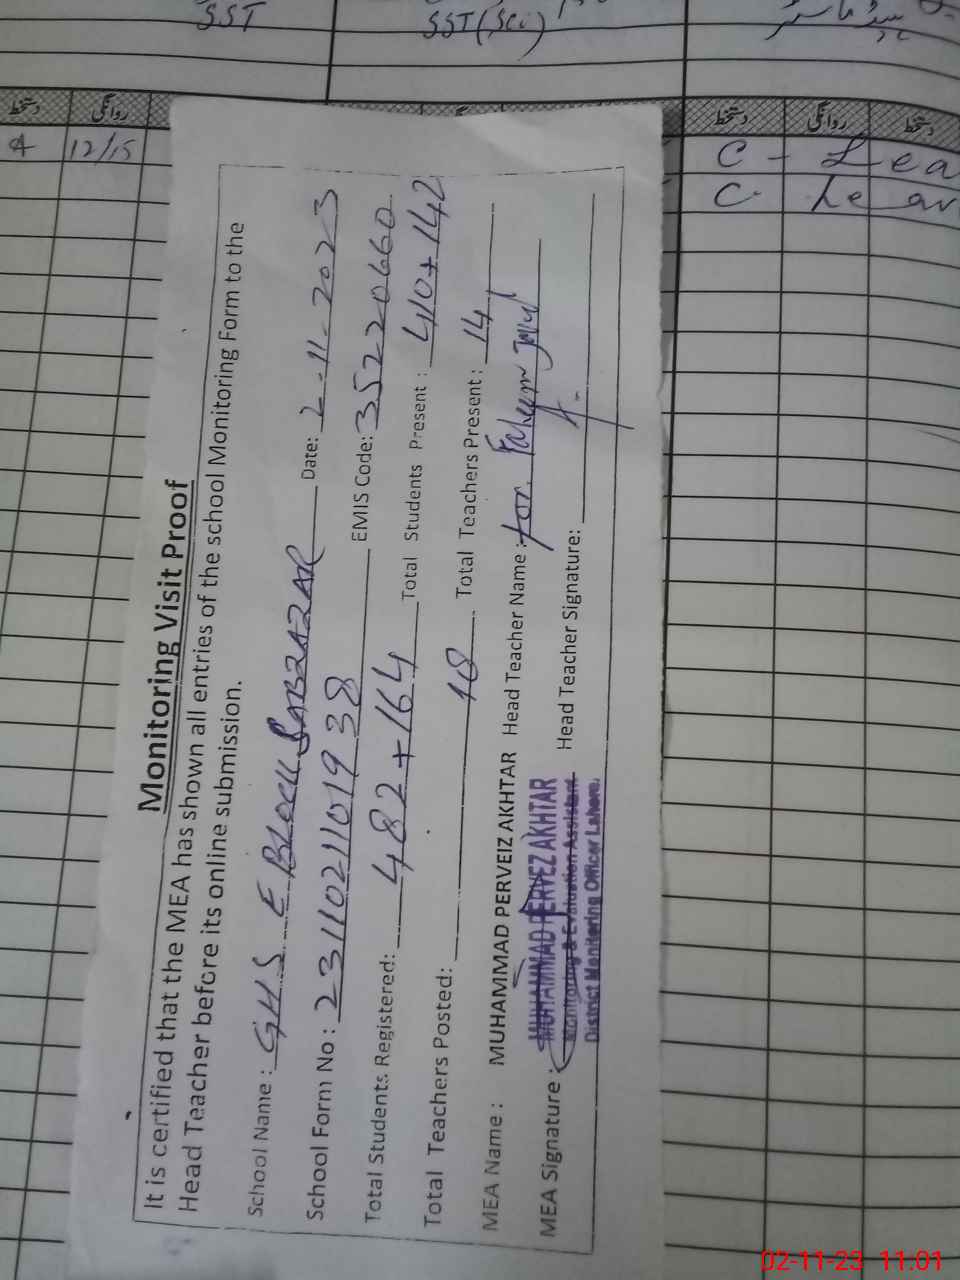 SST
SST (Sci)
ہیڈ ماسٹر
دستخط روانگی دستخط روانگی دستخط
12/15
C - Lea
C. Leav
Monitoring Visit Proof
It is certified that the MEA has shown all entries of the school Monitoring Form to the
Head Teacher before its online submission.
School Name : GHS E Block SABZAZAR Date: 2-11-2023
School Form No : 2311021101938 EMIS Code: 35220660
Total Students Registered: 482+164 Total Students Present : 410+142
Total Teachers Posted: 18 Total Teachers Present : 14
MEA Name : MUHAMMAD PERVEIZ AKHTAR Head Teacher Name : for. Faheem
MEA Signature : MUHAMMAD PERVEZ AKHTAR Head Teacher Signature:
Monitoring & Evaluation Assistant
District Monitoring Officer Lahore.
02-11-23 11:01